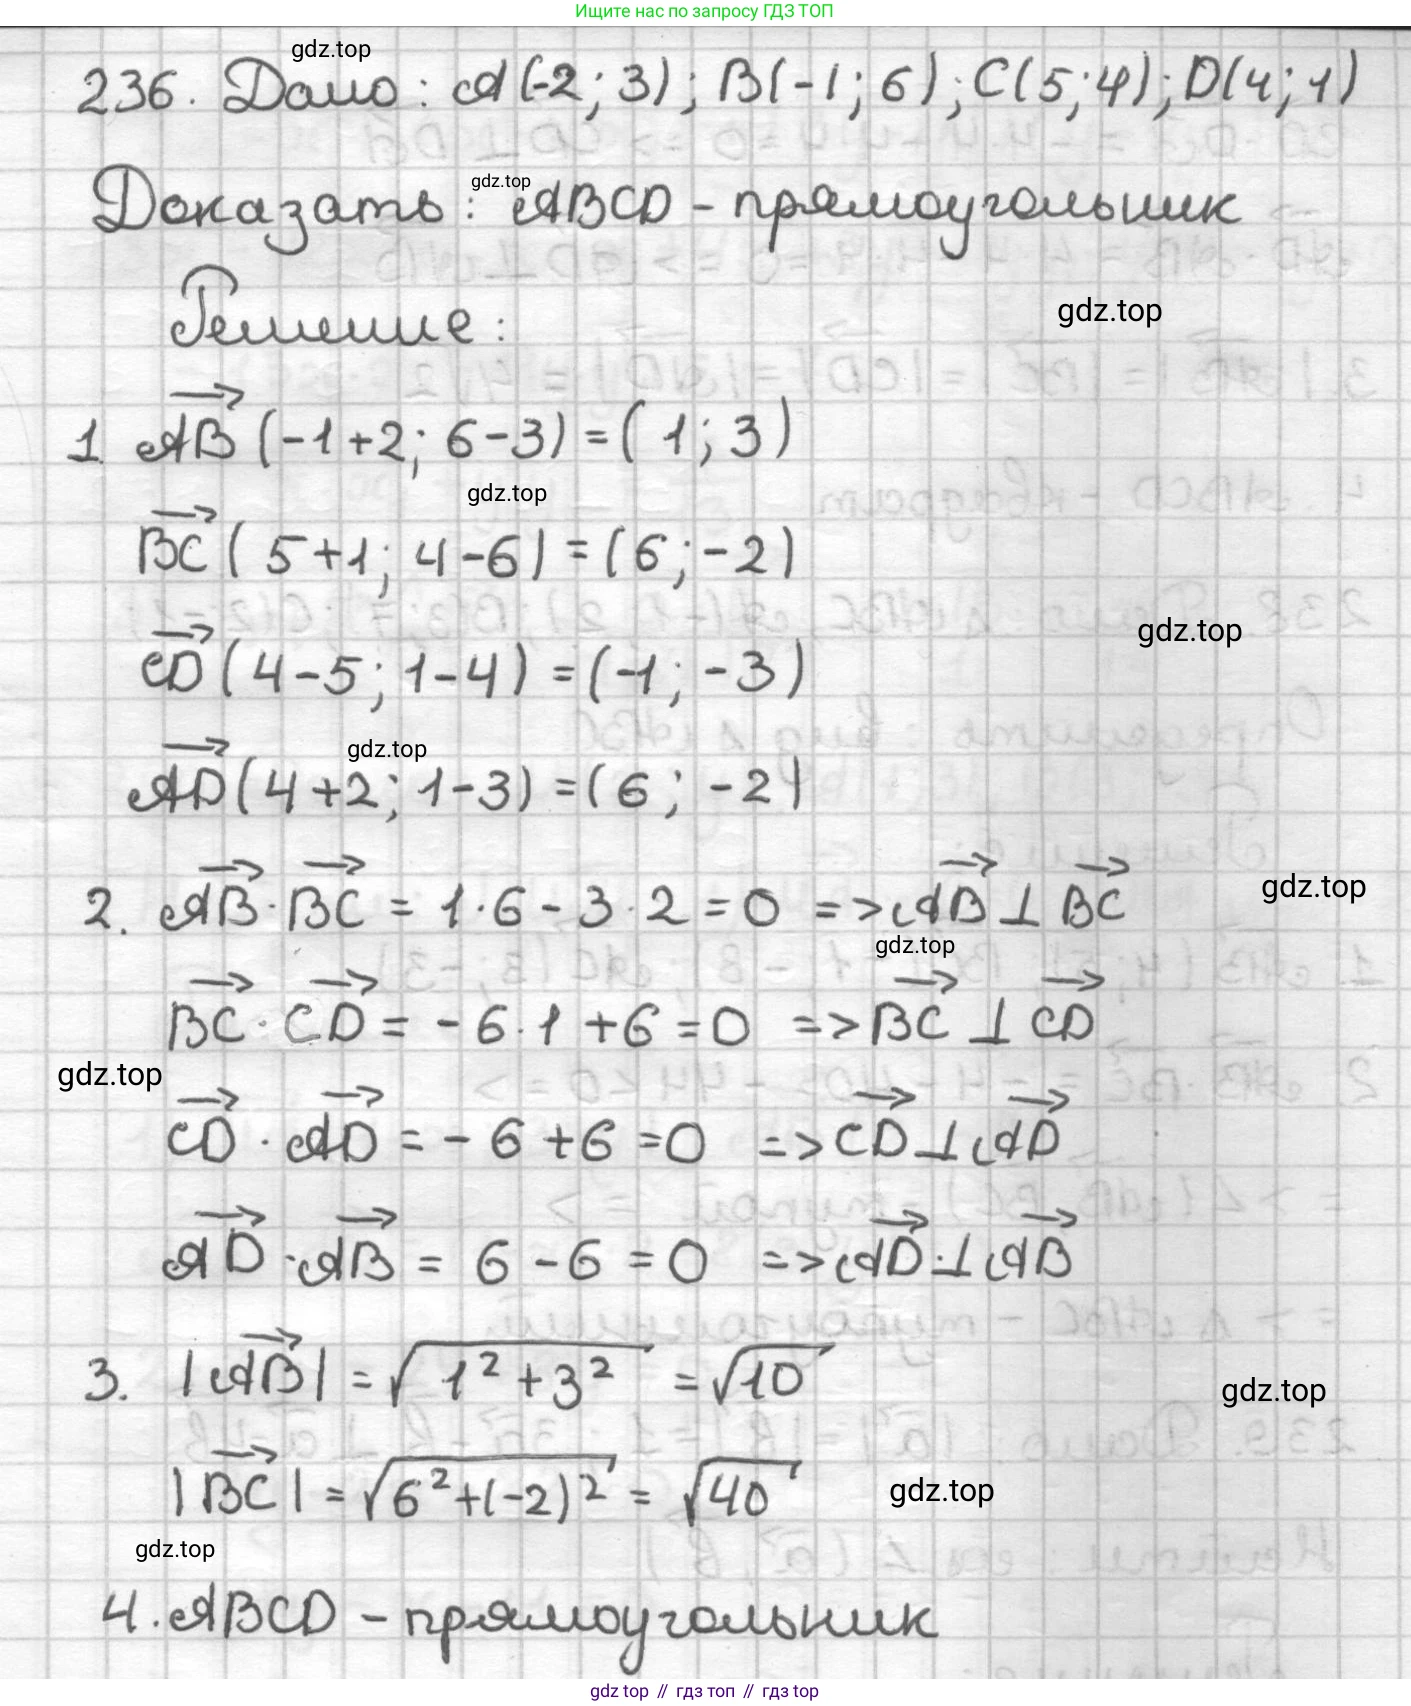 Ищите нас по запросу ГДЗ ТОП
gdz.top
236. Дано: A(-2; 3); B(-1; 6); C(5; 4); D(4; 1)
gdz.top
Доказать: ABCD - прямоугольник
Решение:
gdz.top
1. AB→ (-1+2; 6-3) = (1; 3)
gdz.top
BC→ (5+1; 4-6) = (6; -2)
gdz.top
CD→ (4-5; 1-4) = (-1; -3)
gdz.top
AD→ (4+2; 1-3) = (6; -2)
gdz.top
2. AB→ · BC→ = 1·6 - 3·2 = 0 => AB→ ⊥ BC→
gdz.top
BC→ · CD→ = -6·1 + 6 = 0 => BC→ ⊥ CD→
gdz.top
CD→ · AD→ = -6 + 6 = 0 => CD→ ⊥ AD→
AD→ · AB→ = 6 - 6 = 0 => AD→ ⊥ AB→
3. |AB→| = √(1² + 3²) = √10
gdz.top
|BC→| = √(6² + (-2)²) = √40
gdz.top
gdz.top
4. ABCD - прямоугольник
gdz top // гдз топ // gdz top